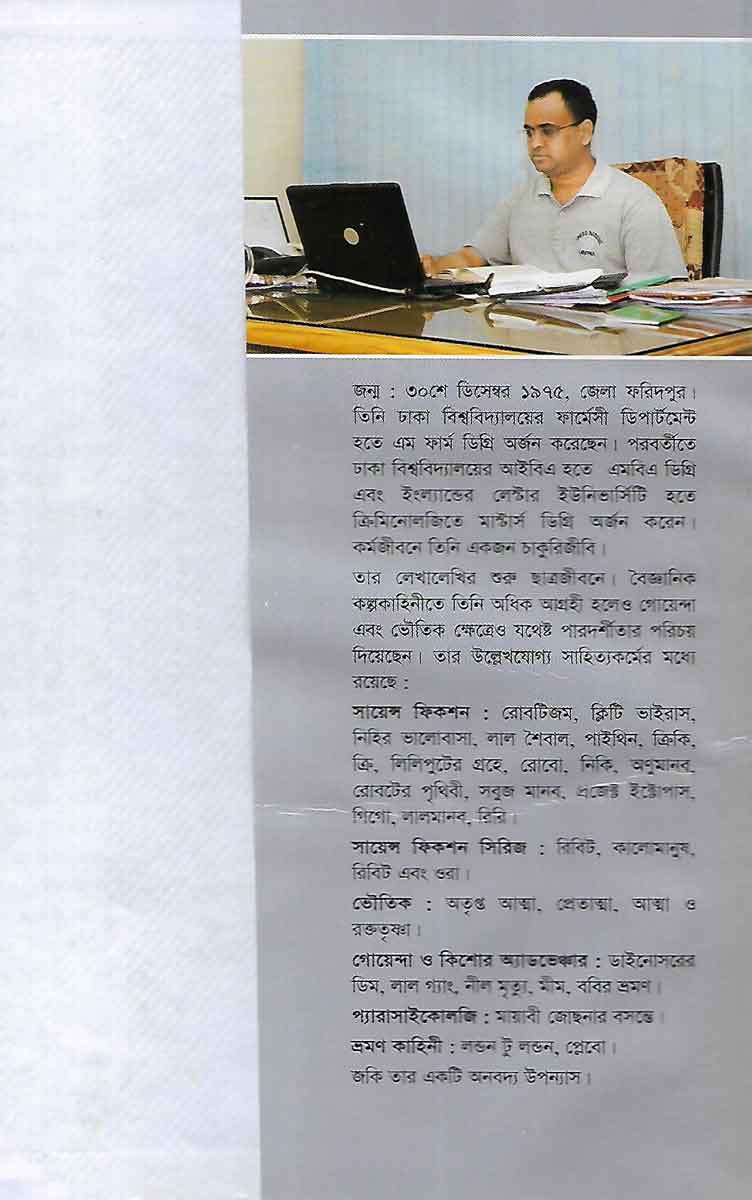 জন্ম : ৩০শে ডিসেম্বর ১৯৭৫, জেলা ফরিদপুর।
তিনি ঢাকা বিশ্ববিদ্যালয়ের ফার্মেসী ডিপার্টমেন্ট
হতে এম ফার্ম ডিগ্রি অর্জন করেছেন। পরবর্তীতে
ঢাকা বিশ্ববিদ্যালয়ের আইবিএ হতে এমবিএ ডিগ্রি
এবং ইংল্যান্ডের লেস্টার ইউনিভার্সিটি হতে
ক্রিমিনোলজিতে মাস্টার্স ডিগ্রি অর্জন করেন।
কর্মজীবনে তিনি একজন চাকুরিজীবি।
তার লেখালেখির শুরু ছাত্রজীবনে। বৈজ্ঞানিক
কল্পকাহিনীতে তিনি অধিক আগ্রহী হলেও গোয়েন্দা
এবং ভৌতিক ক্ষেত্রেও যথেষ্ট পারদর্শীতার পরিচয়
দিয়েছেন। তার উল্লেখযোগ্য সাহিত্যকর্মের মধ্যে
রয়েছে :
সায়েন্স ফিকশন : রোবটিজম, ক্লিটি ভাইরাস,
নিহির ভালোবাসা, লাল শৈবাল, পাইথিন, ক্রিকি,
ক্রি, লিলিপুটের গ্রহে, রোবো, নিকি, অণুমানব,
রোবটের পৃথিবী, সবুজ মানব, প্রজেক্ট ইক্টোপাস,
গিগো, লালমানব, রিরি।
সায়েন্স ফিকশন সিরিজ : রিবিট, কালোমানুষ,
রিবিট এবং ওরা।
ভৌতিক : অতৃপ্ত আত্মা, প্রেতাত্মা, আত্মা ও
রক্ততৃষ্ণা।
গোয়েন্দা ও কিশোর অ্যাডভেঞ্চার : ডাইনোসরের
ডিম, লাল গ্যাং, নীল মৃত্যু, মীম, ববির ভ্রমণ।
প্যারাসাইকোলজি : মায়াবী জোছনার বসন্তে।
ভ্রমণ কাহিনী : লন্ডন টু লন্ডন, প্লেবো।
জকি তার একটি অনবদ্য উপন্যাস।